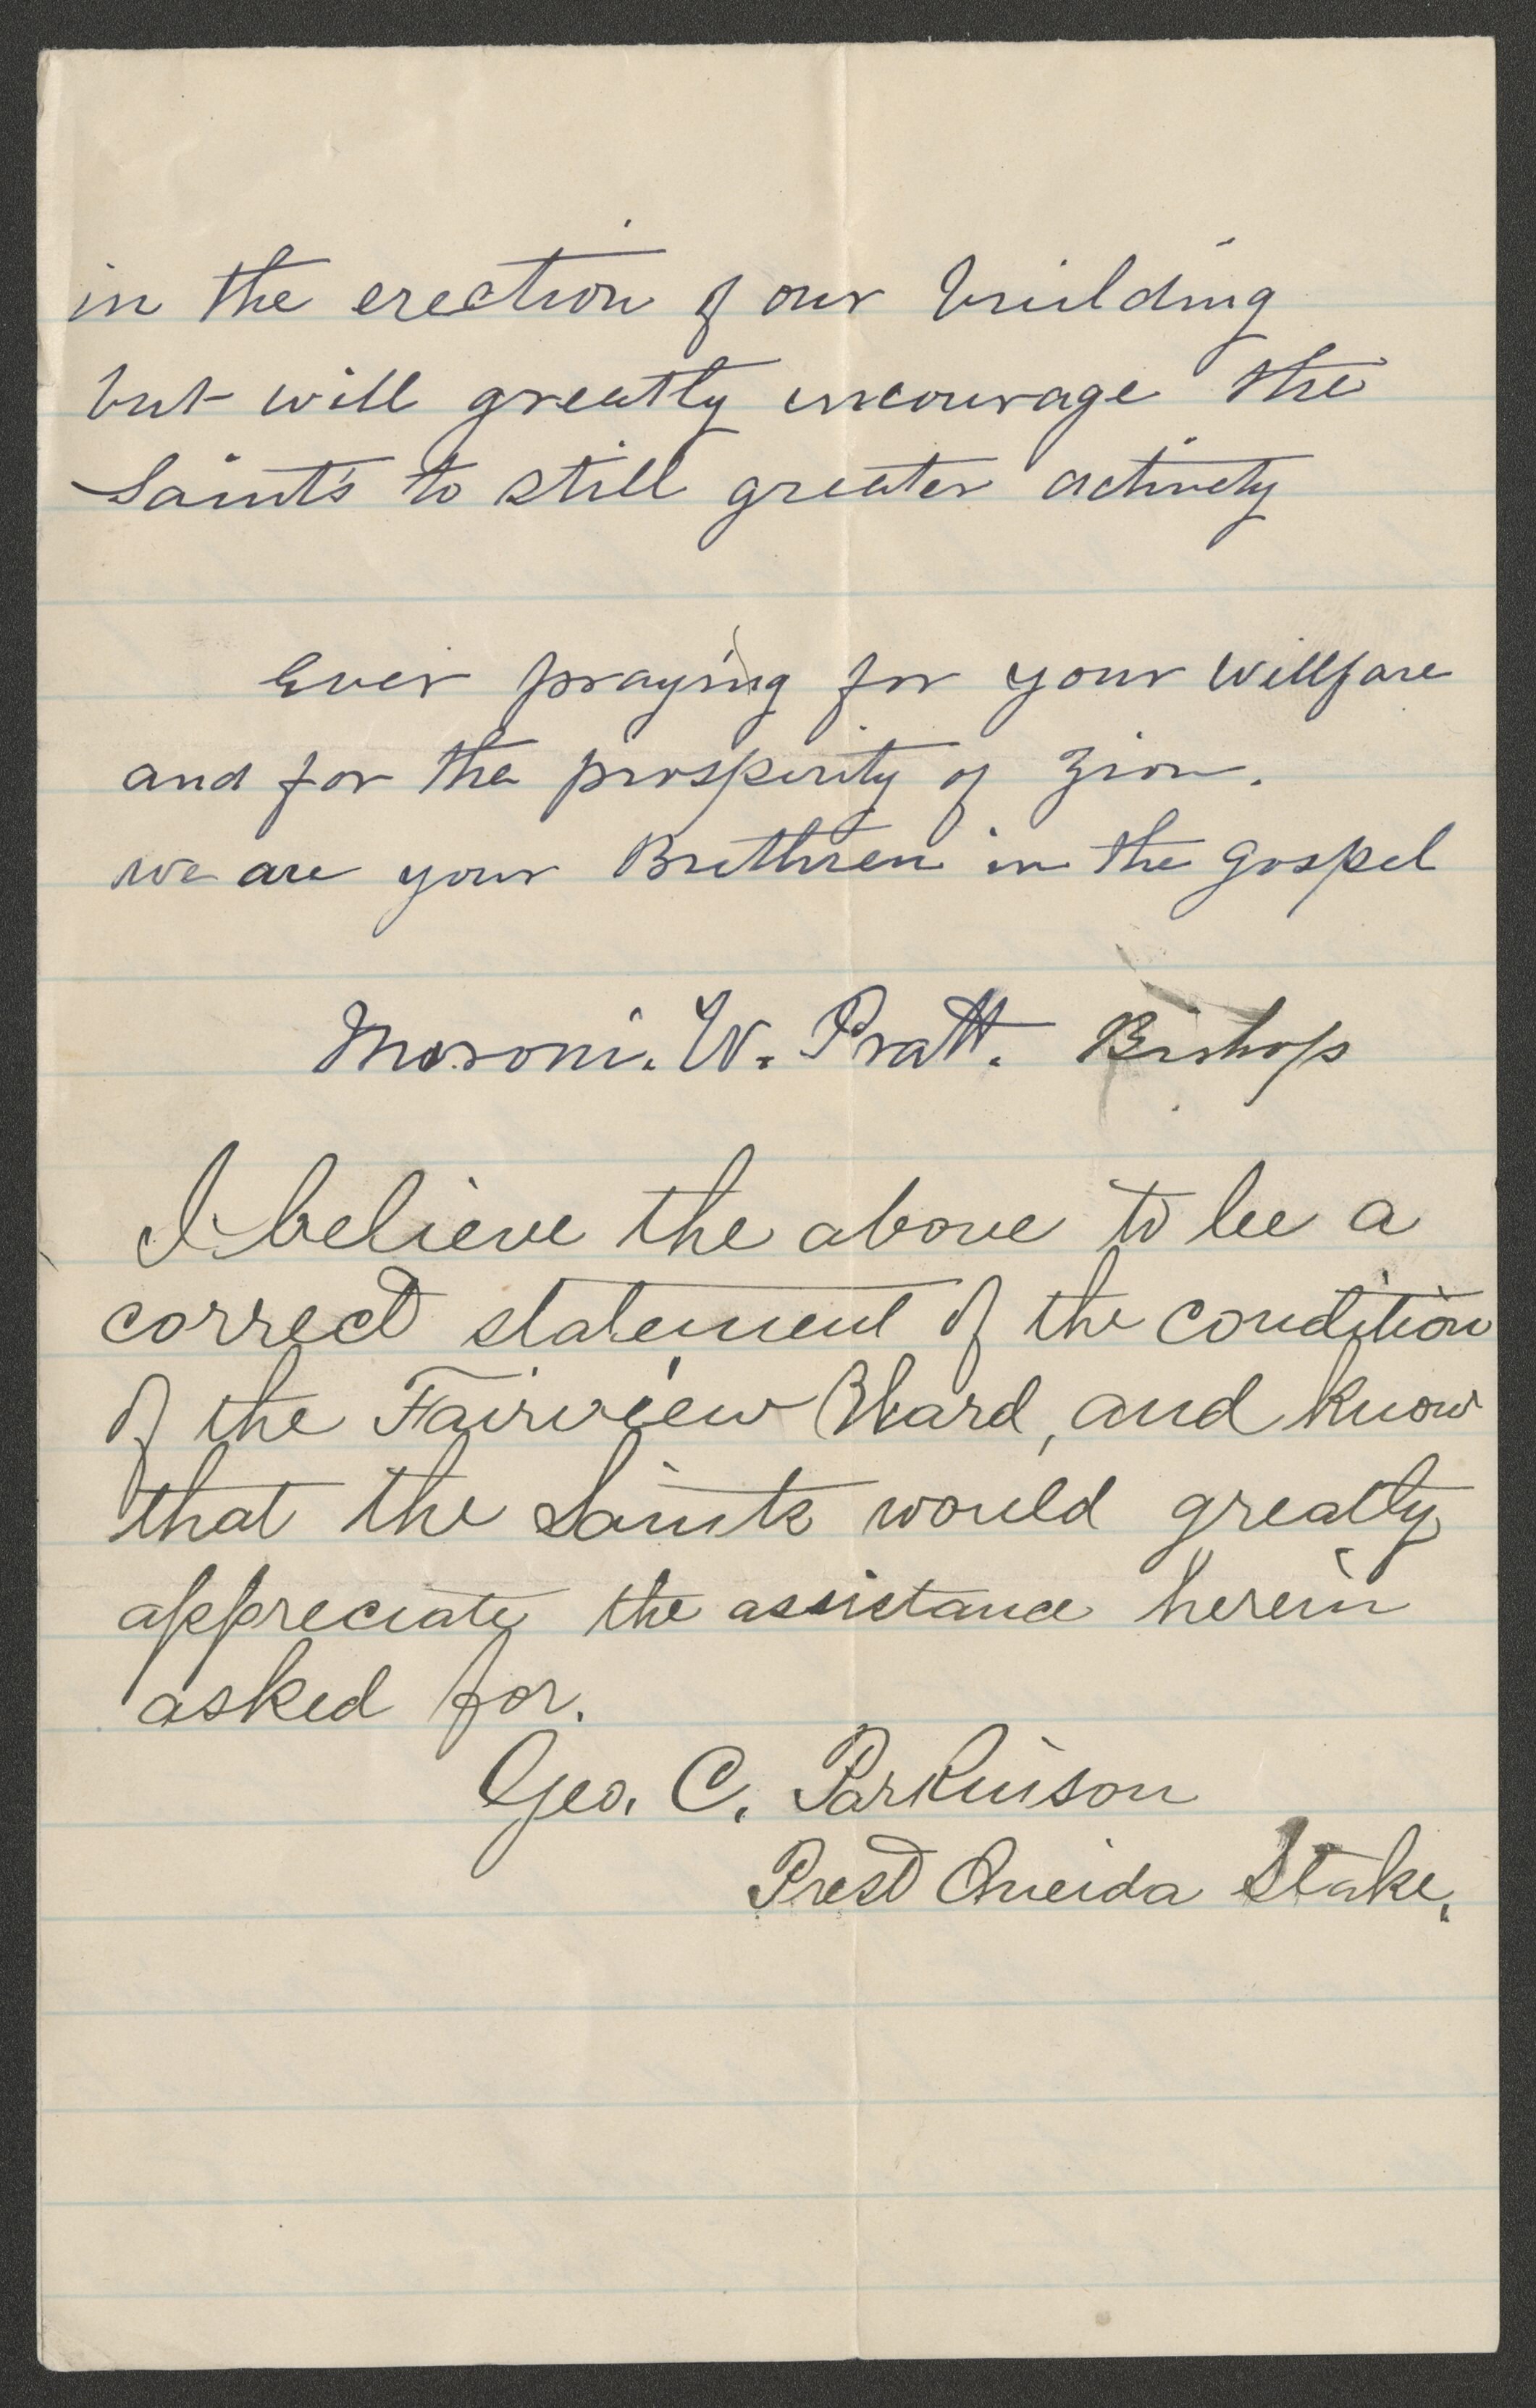 in the erection of our building
but will greatly encourage the
Saints to still greater activety
Ever praying for your Willfare
and for the prosperity of Zion.
we are your Brethren in the gospel
Moroni. W. Pratt. Bishop
I believe the above to be a
correct statement of the condition
of the Fairview Ward, and know
that the Saints would greatly
appreciate the assistance herein
asked for.
Geo. C. Parkinson
Prest Oneida Stake.